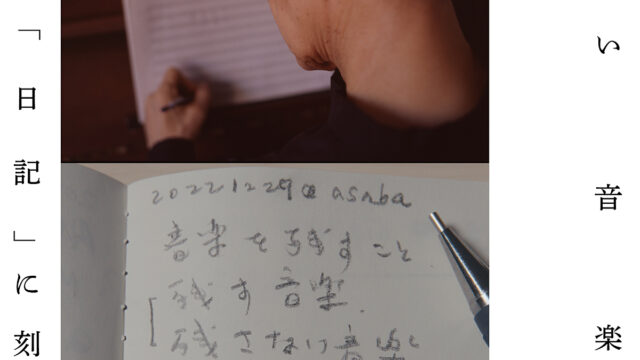 い音楽
「日記」に刻
20221229@asaba
音楽を残すこと
残す音楽
残さない音楽